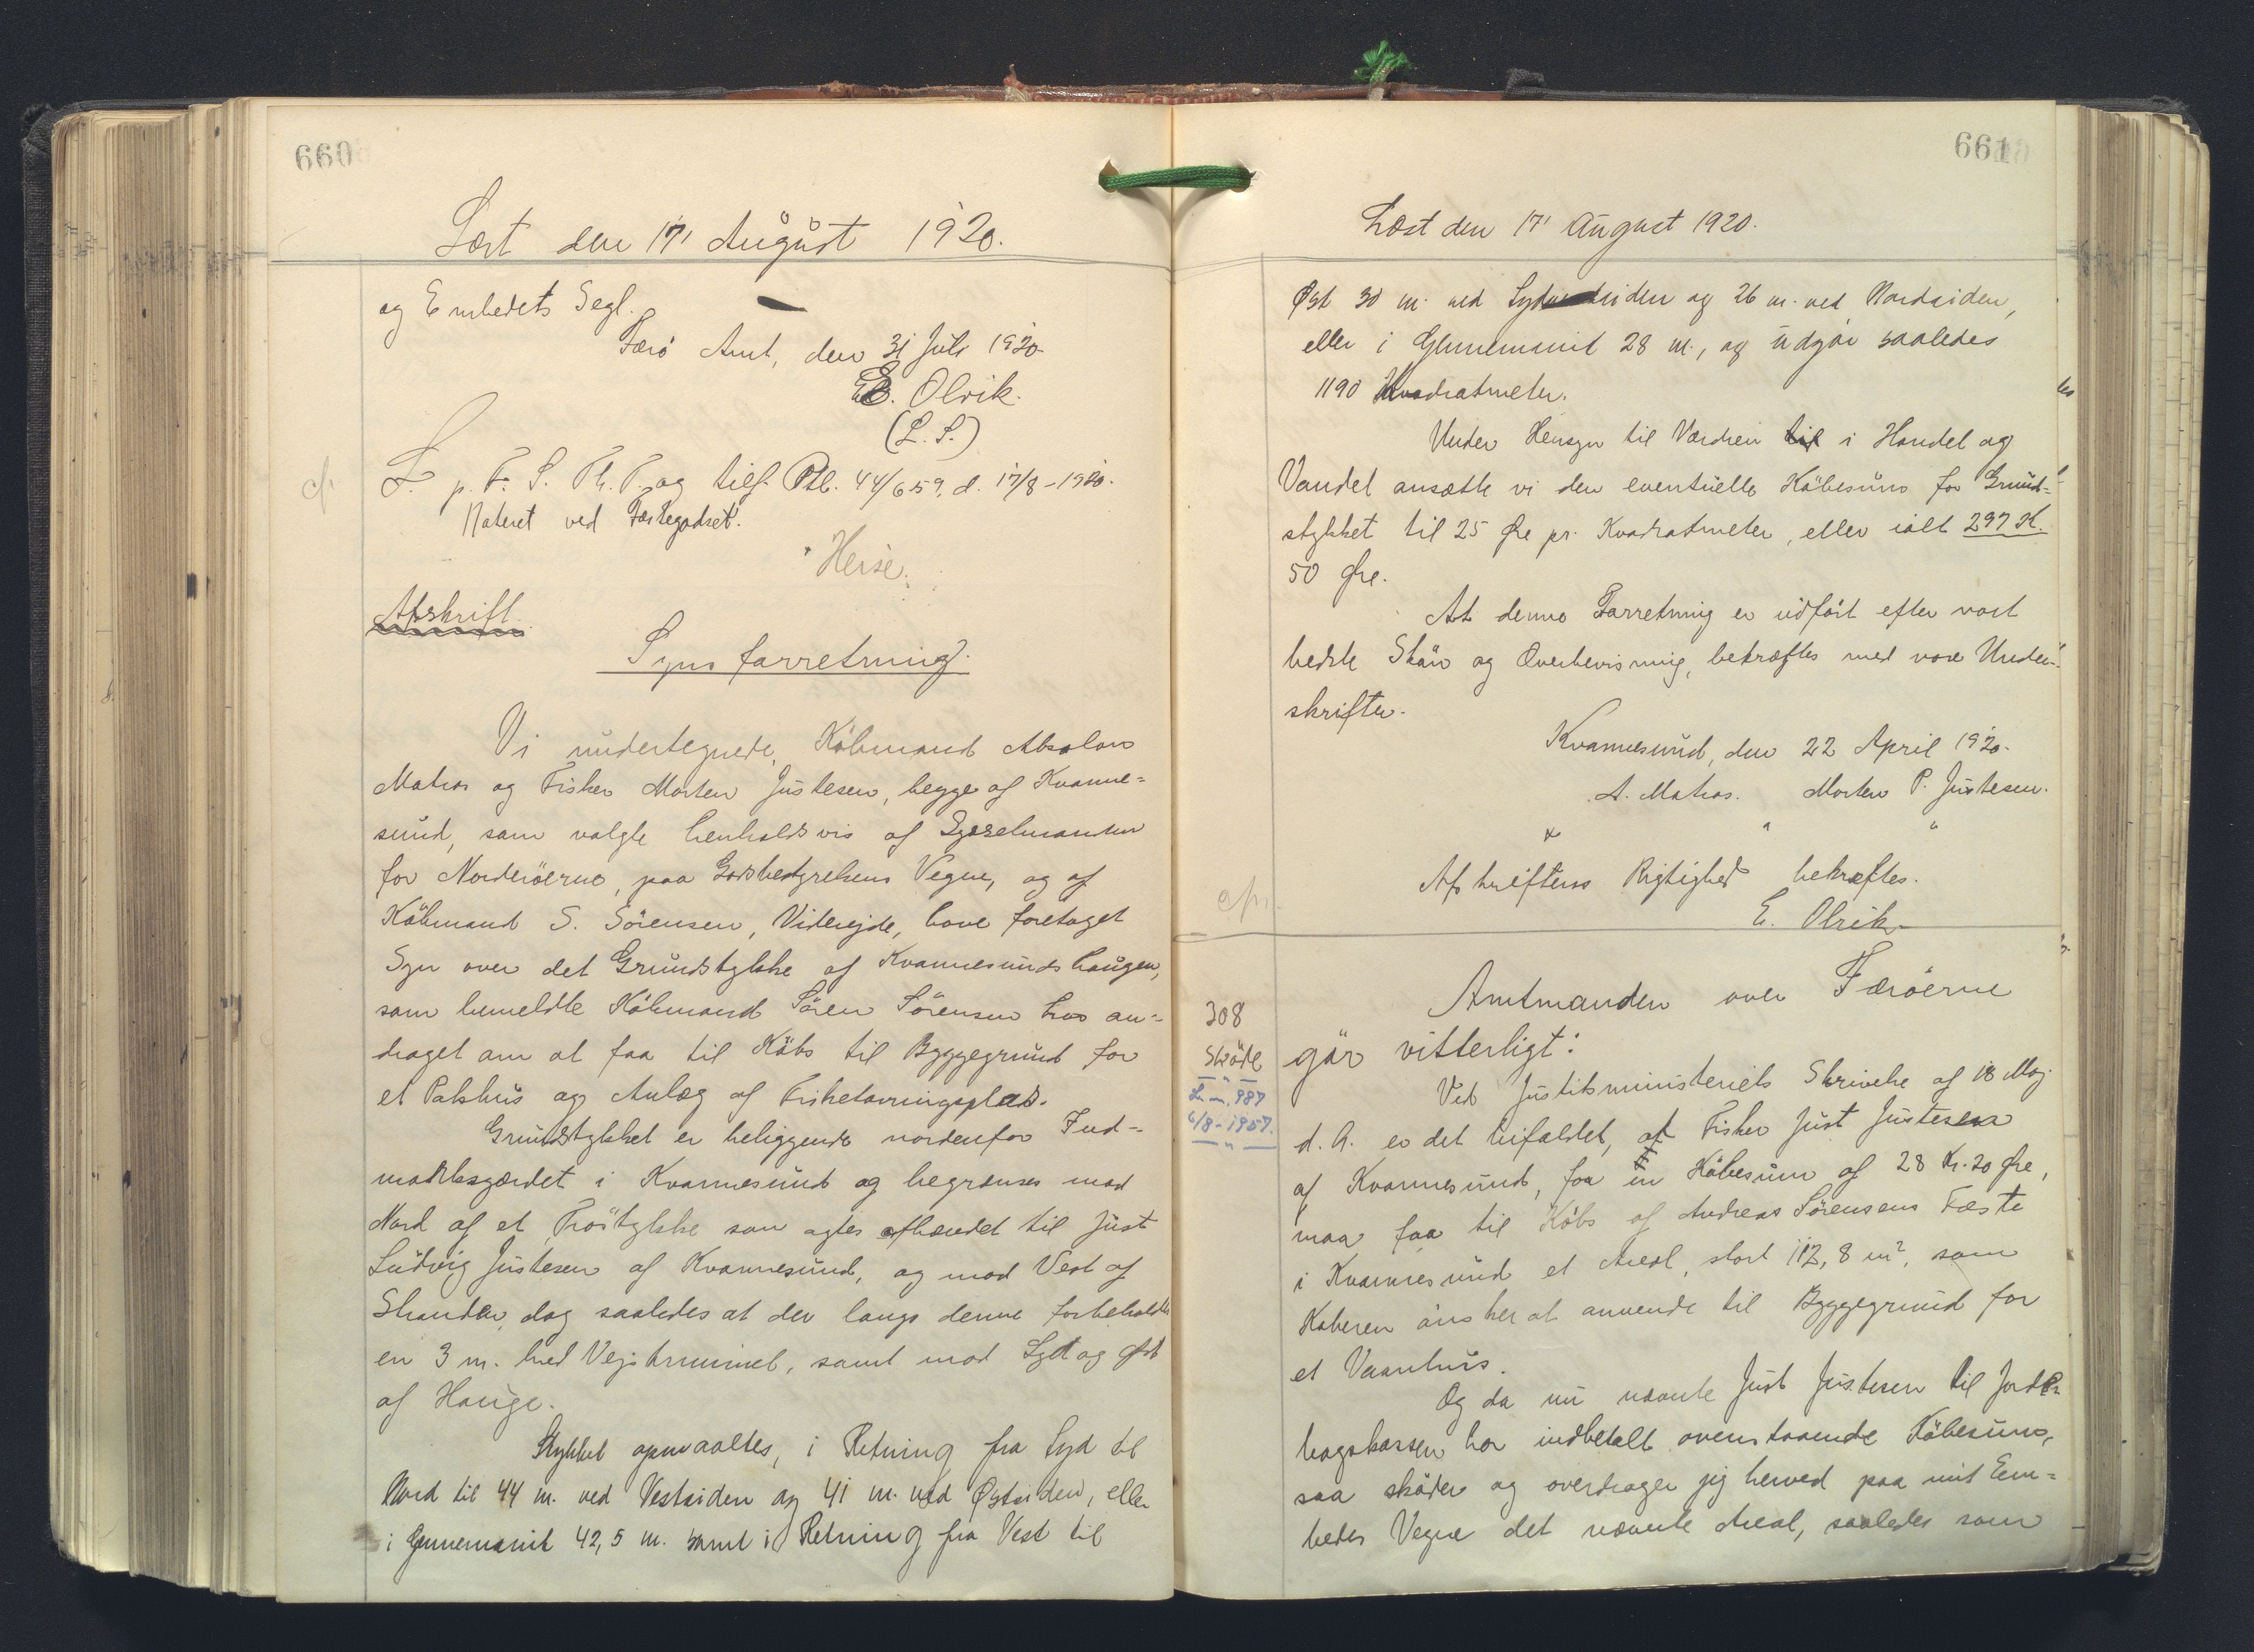 660
Læst den 17' August 1920.
og Embedets Segl.
Færø Amt, den 31 Juli 1920
E. Olrik.
(L. S.)
cfr
L. p. F. S. Th. T. og tilf. Ptb. 44/659, d. 17/8-1920.
Noteret ved Fæstegodset.
Heise.
Afskrift.
Synsforretning.
Vi undertegnede, Köbmand Absalon
Matras og Fisker Morten Justesen, begge af Kvanne=
sund, som valgte henholdsvis af Sysselmanden
for Norderöerne, paa Godsbestyrelsens Vegne, og af
Köbmand S. Sörensen, Viderejde, have foretaget
Syn over det Grundstykke af Kvannesunds Haugen,
som bemeldte Köbmand Sören Sörensen har an=
draget om at faa til Köbs til Byggegrund for
et Pakhus og Anlæg af Fisketørringsplads.
Grundstykket er beliggende nordenfor Ind=
marksgærdet i Kvannesund og begrænses mod
Nord af et Tröstykke som agtes afhændet til Just
Ludvig Justesen af Kvannesund, og mod Vest af
Stranden, dog saaledes at der langs denne forbeholdes
en 3 m. bred Vejstrimmel, samt mod Syd og Øst
af Hauge.
Stykket opmaaltes, i Retning fra Syd til
Nord til 44 m. ved Vestsiden og 41 m. ved Østsiden, eller
i Gennemsnit 42,5 m. samt i Retning fra Vest til
661
Læst den 17' August 1920.
Øst 30 m. ved Sydsiden og 26 m. ved Nordsiden,
eller i Gennemsnit 28 m., og udgör saaledes
1190 Kvadratmeter.
Under Hensyn til Værdien til i Handel og
Vandel ansætte vi den eventuelle Köbesum for Grund=
stykket til 25 Øre pr. Kvadratmeter, eller ialt 297 K.
50 Øre.
At denne Forretning er udfört efter vort
bedste Skön og Overbevisning, bekræftes med vore Under=
skrifter.
Kvannesund, den 22 April 1920.
A. Matras. Morten P. Justesen.
Afskriftens Rigtighed bekræftes.
E. Olrik
cfr.
Amtmanden over Færöerne
308
Sköde
Ln. 987
6/8-1957.
gör vitterligt:
Ved Justitsministeriets Skrivelse af 18 Maj
d. A. er det bifaldet, at Fisker Just Justesen
af Kvannesund, for en Köbesum af 28 Kr. 20 Øre,
maa faa til Köbs af Andreas Sörensens Fæste
i Kvannesund et Areal, stort 112,8 m², som
Køberen önsker at anvende til Byggegrund for
et Vaanhus.
Og da nu nævnte Just Justesen til Jorde
bogskassen har indbetalt ovenstaaende Köbesum,
saa sköder og overdrager jeg herved paa mit Em=
bedes Vegne det nævnte Areal, saaledes som